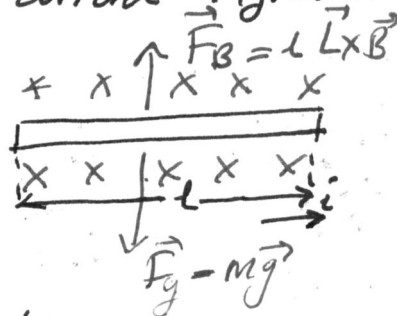 F⃗_B = i L⃗ x B⃗
x x x x x
x x x x x
l i
F⃗_g = m g⃗